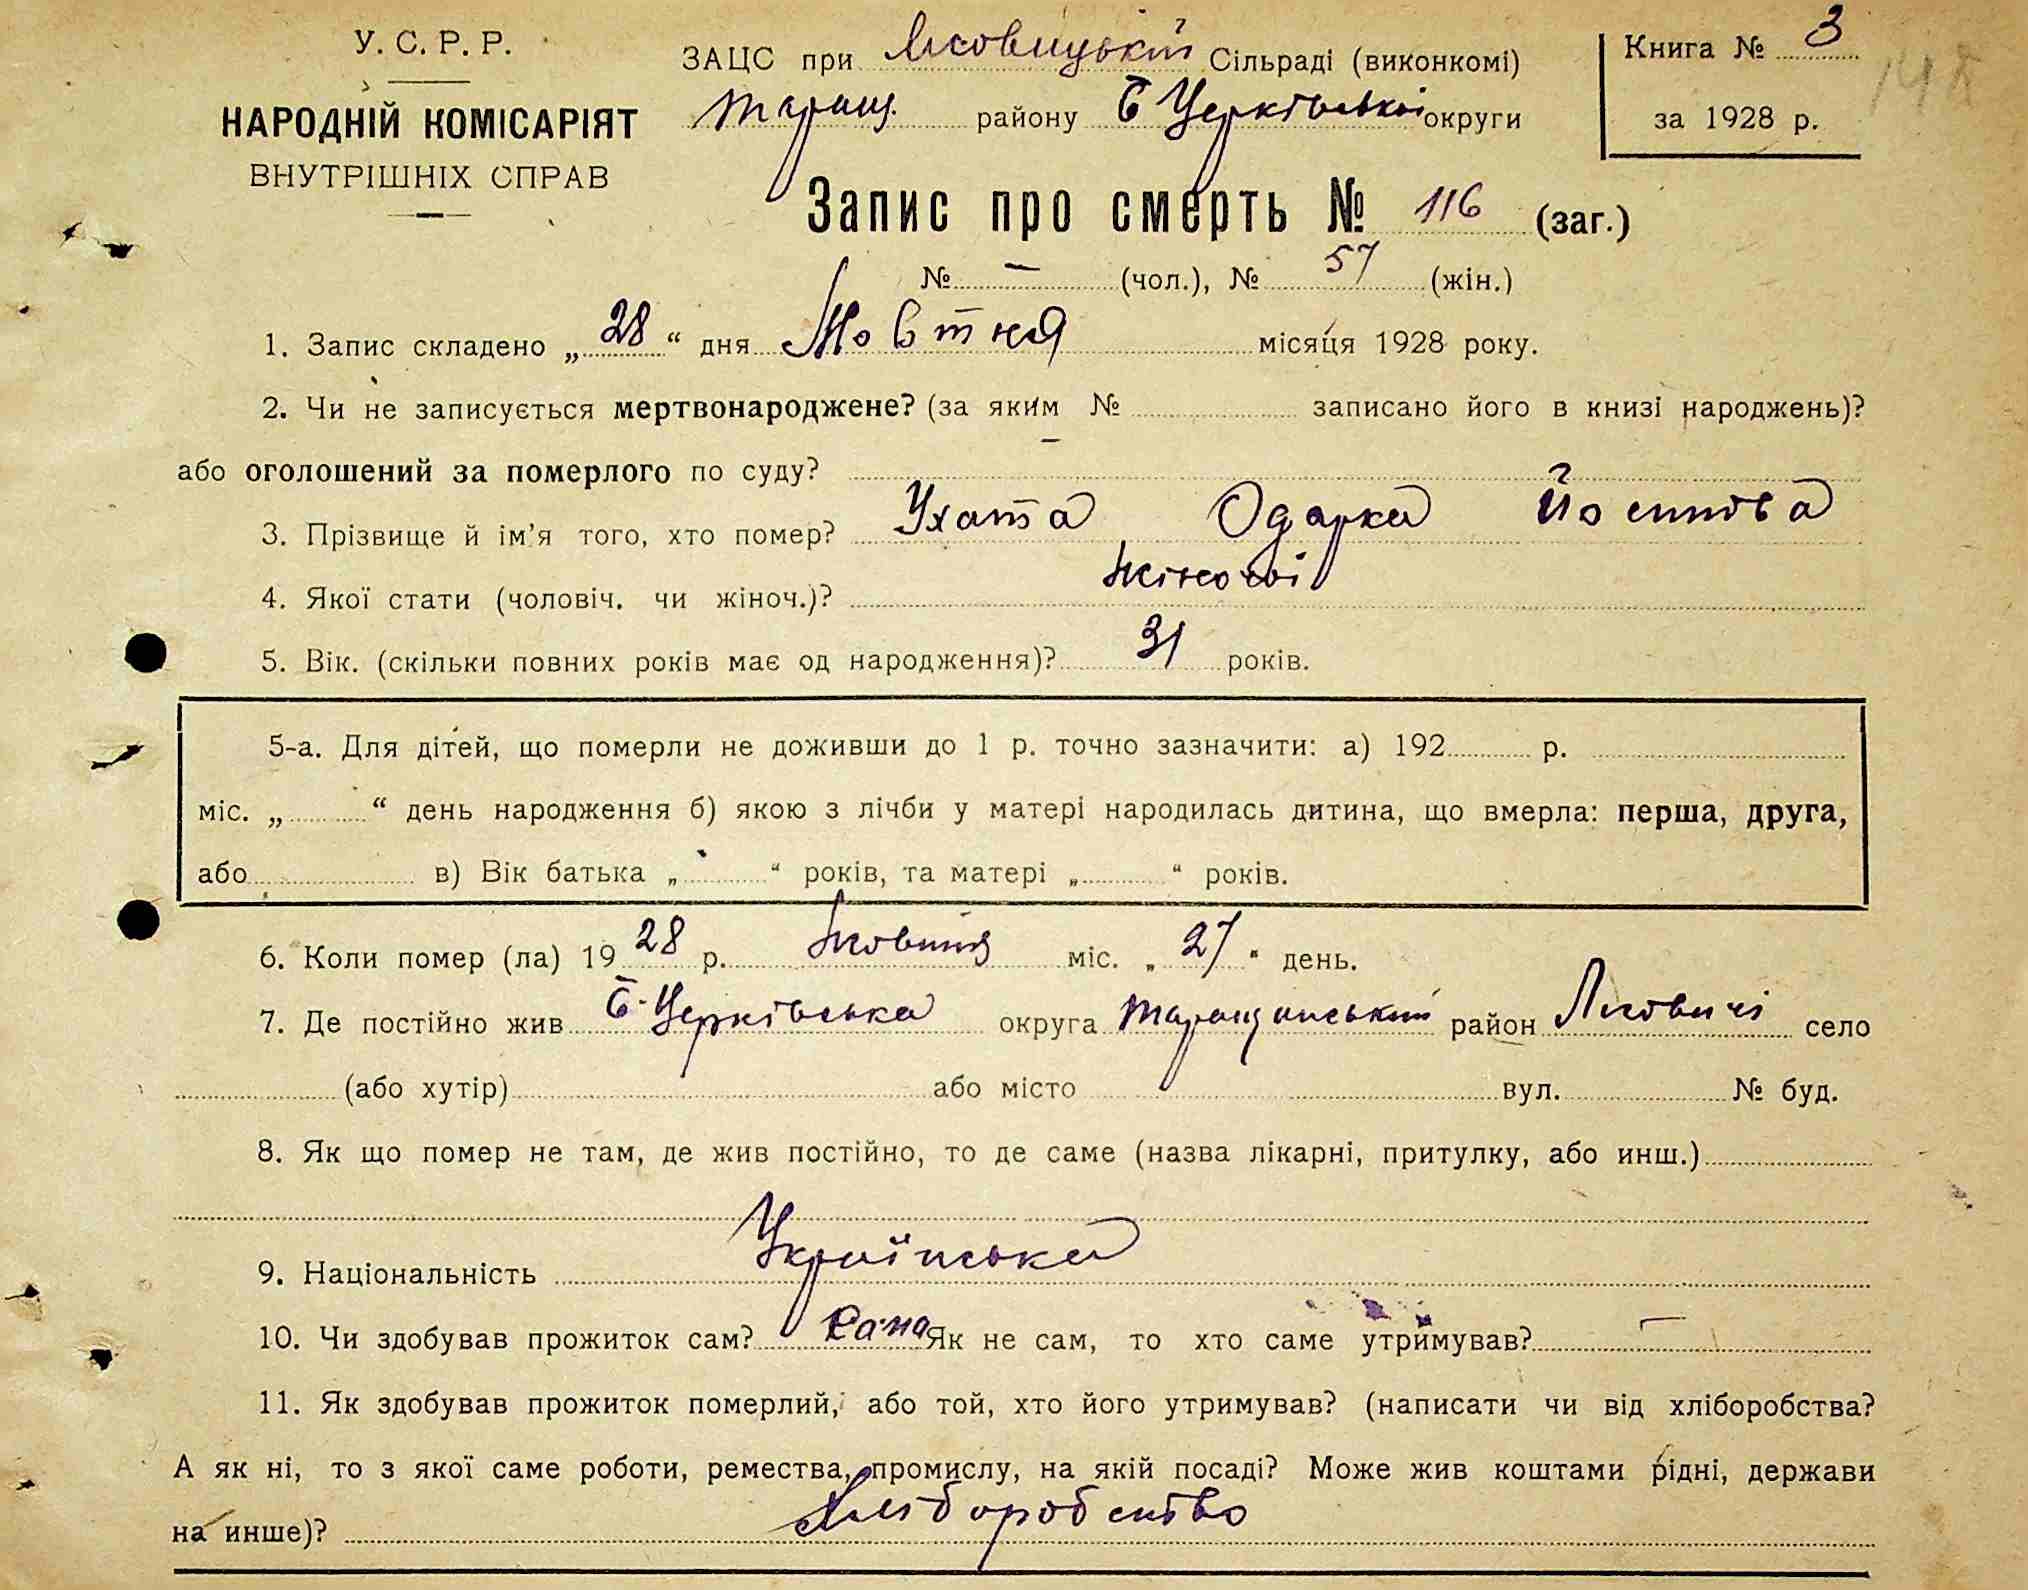 У. С. Р. Р.
НАРОДНІЙ КОМІСАРІЯТ
ВНУТРІШНІХ СПРАВ
ЗАЦС при Лісовицькій Сільраді (виконкомі)
Таращ. району Б Церківської округи
Книга № 3
за 1928 р.
Запис про смерть № 116 (заг.)
№ — (чол.), № 57 (жін.)
1. Запис складено „28“ дня Жовтня місяця 1928 року.
2. Чи не записується мертвонароджене? (за яким № записано його в книзі народжень)?
або оголошений за померлого по суду? —
3. Прізвище й ім'я того, хто помер? Ухата Одарка Йосипова
4. Якої стати (чоловіч. чи жіноч.)? жіночої
5. Вік. (скільки повних років має од народження)? 31 років.
5-а. Для дітей, що померли не доживши до 1 р. точно зазначити: а) 192 р.
міс. „ “ день народження б) якою з лічби у матері народилась дитина, що вмерла: перша, друга,
або в) Вік батька „ “ років, та матері „ “ років.
6. Коли помер (ла) 1928 р. Жовтня міс. „27“ день.
7. Де постійно жив Б-Церківська округа Таращанський район Лісовичі село
(або хутір) або місто вул. № буд.
8. Як що помер не там, де жив постійно, то де саме (назва лікарні, притулку, або инш.)
9. Національність Українська
10. Чи здобував прожиток сам? Сама Як не сам, то хто саме утримував? —
11. Як здобував прожиток померлий, або той, хто його утримував? (написати чи від хліборобства?
А як ні, то з якої саме роботи, ремества, промислу, на якій посаді? Може жив коштами рідні, держави
на инше)? Хліборобство